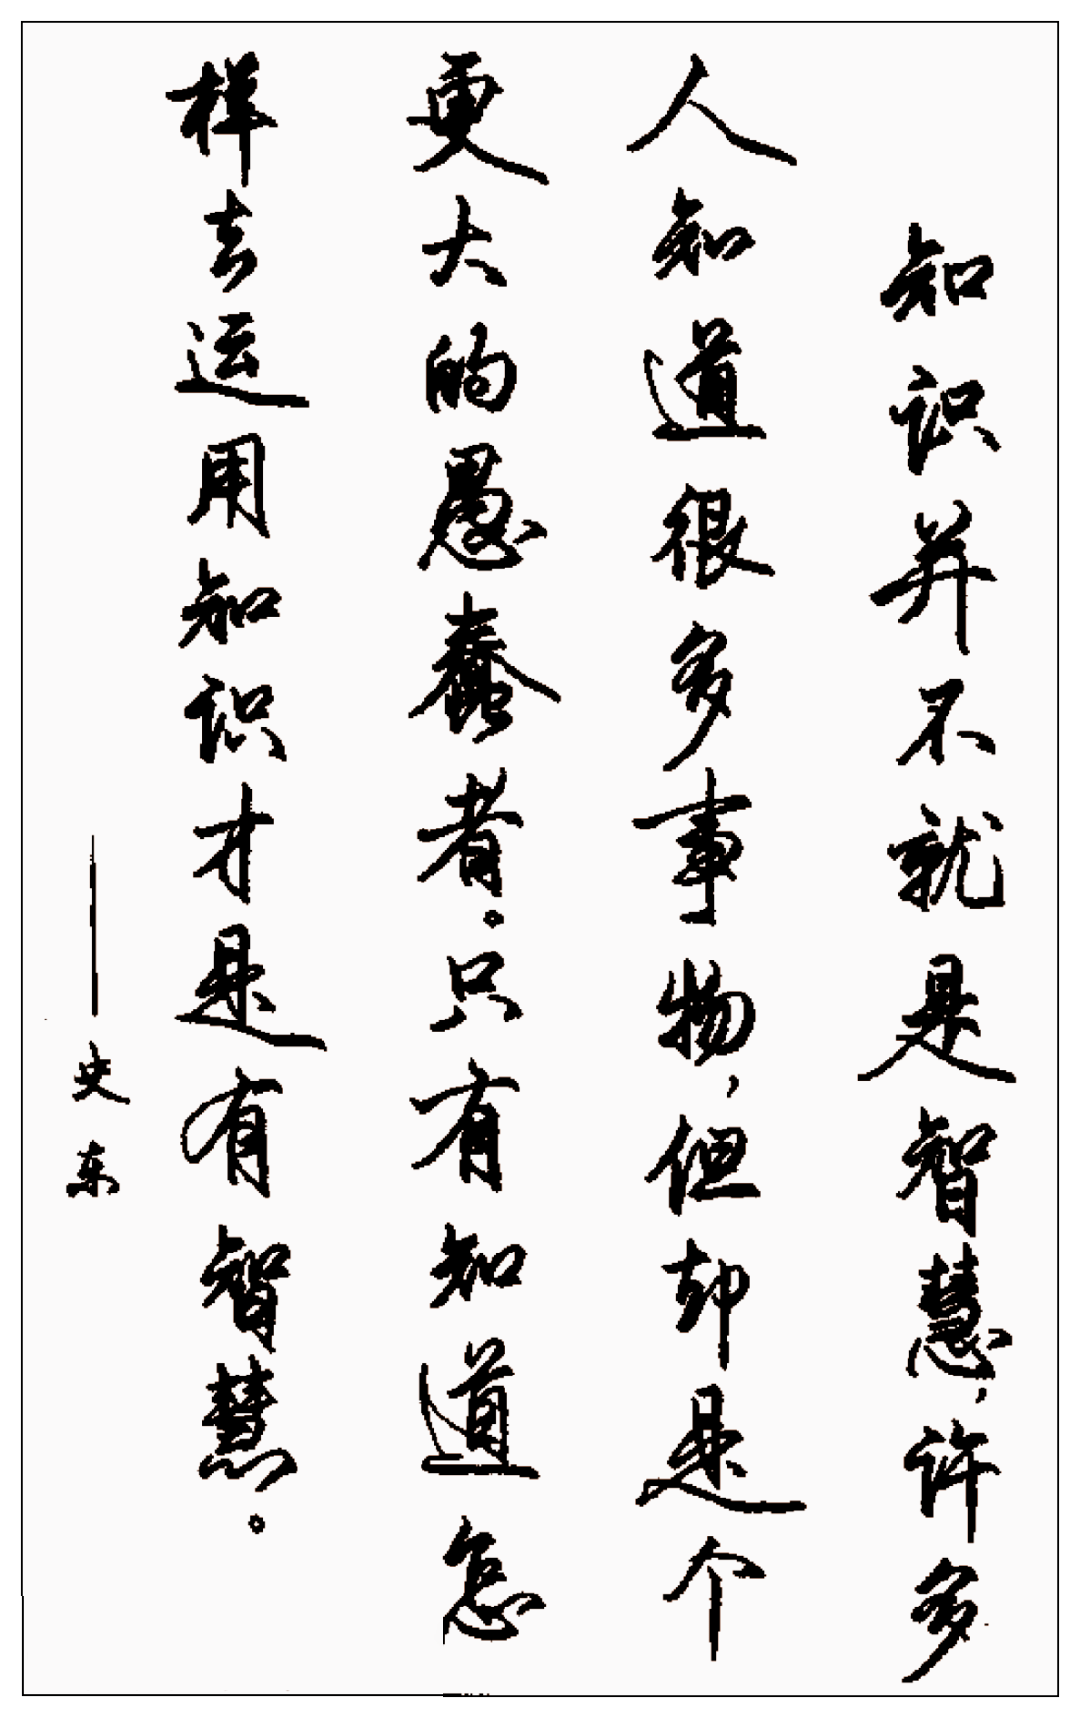 知识并不就是智慧，许多
人知道很多事物，但却是个
更大的愚蠢者。只有知道怎
样去运用知识才是有智慧。
——史东